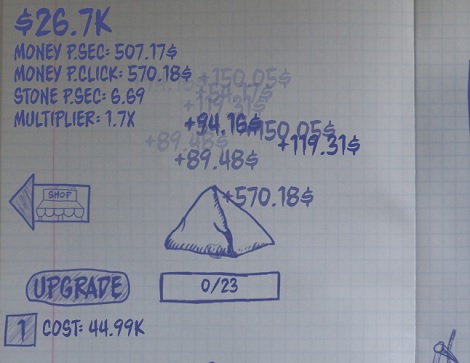 $26.7K
MONEY P.SEC: 507.17$
MONEY P.CLICK: 570.18$
STONE P.SEC: 6.69
MULTIPLIER: 1.7X
+150.05$
+119.31$
+94.16$
+150.05$
+119.31$
+89.48$
+89.48$
+570.18$
SHOP
UPGRADE
0/23
1 COST: 44.99K